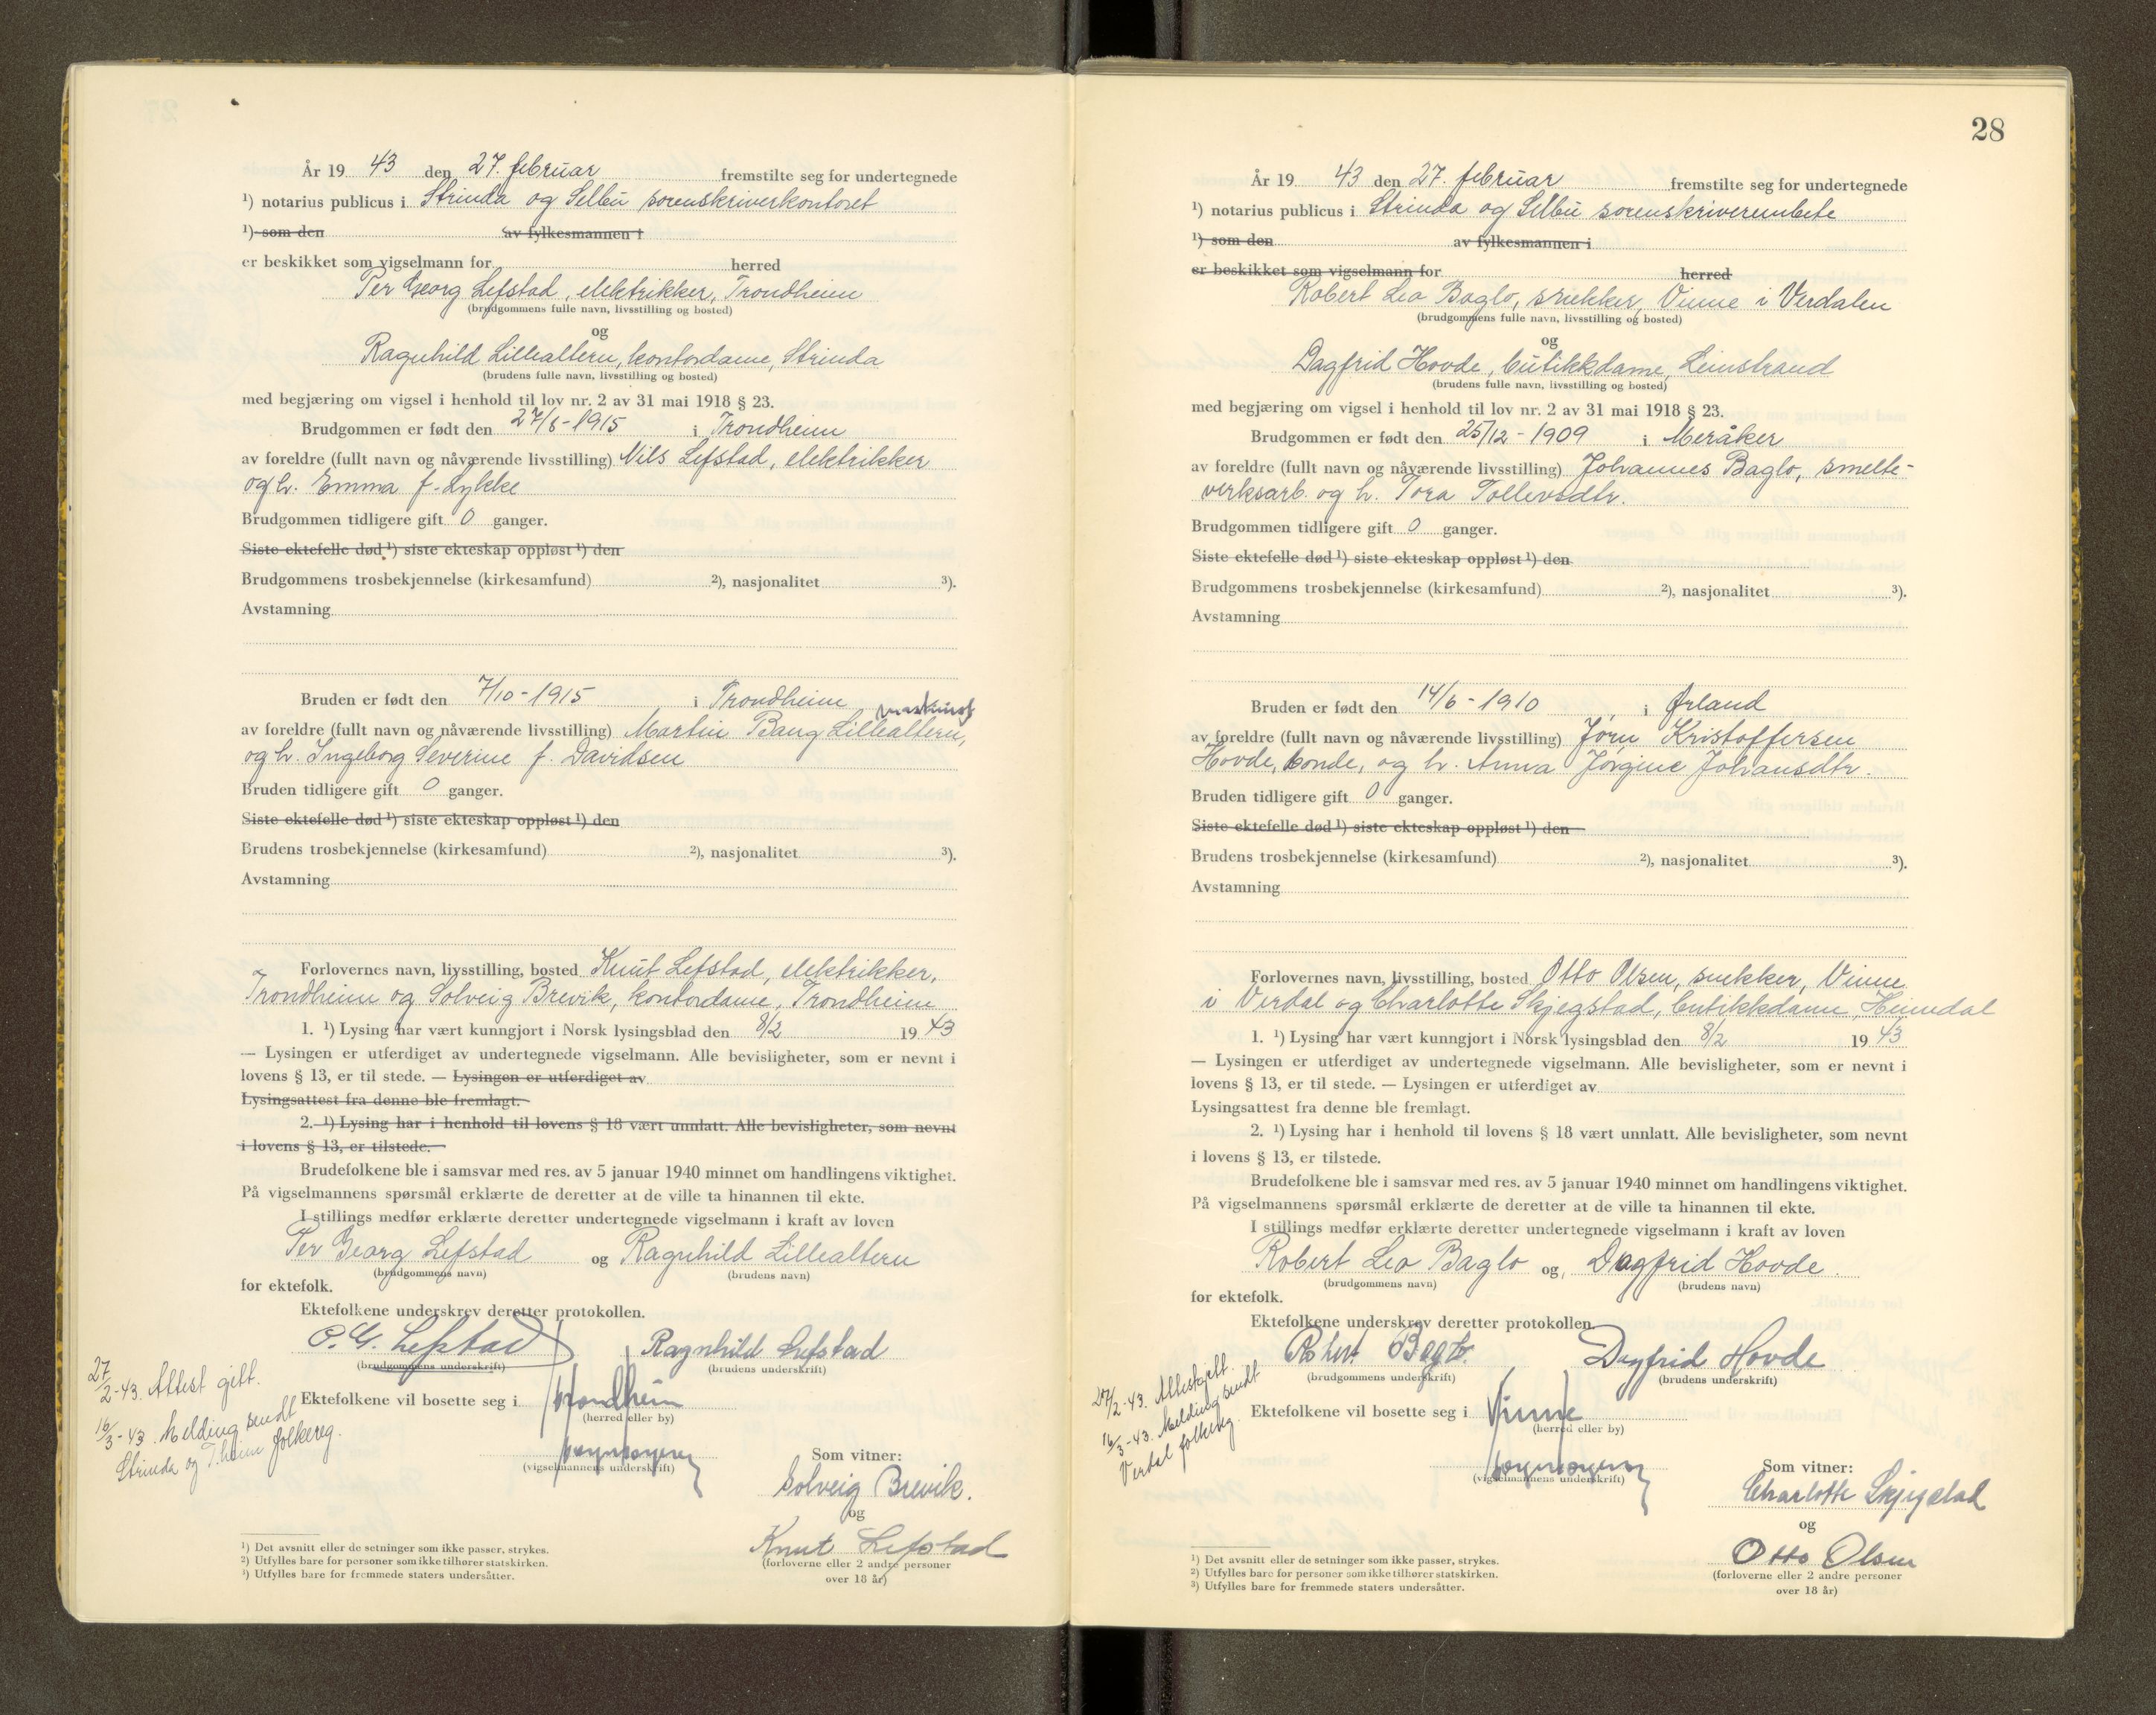 År 19 43 den 27. februar fremstilte seg for undertegnede
¹) notarius publicus i Strinda og Selbu sorenskriverkontoret
¹) som den av fylkesmannen i
er beskikket som vigselmann for herred
Per Georg Lefstad, elektrikker, Trondheim
(brudgommens fulle navn, livsstilling og bosted)
og
Ragnhild Lillealtern, kontordame, Strinda
(brudens fulle navn, livsstilling og bosted)
med begjæring om vigsel i henhold til lov nr. 2 av 31 mai 1918 § 23.
Brudgommen er født den 27/6-1915 i Trondheim
av foreldre (fullt navn og nåværende livsstilling) Nils Lefstad, elektrikker
og h. Emma f. Lykke
Brudgommen tidligere gift 0 ganger.
Siste ektefelle død ¹) siste ekteskap oppløst ¹) den
Brudgommens trosbekjennelse (kirkesamfund) ²), nasjonalitet ³).
Avstamning
Bruden er født den 7/10-1915 i Trondheim
maskinist
av foreldre (fullt navn og nåværende livsstilling) Martin Bang Lillealtern,
og h. Ingeborg Severine f. Davidsen
Bruden tidligere gift 0 ganger.
Siste ektefelle død ¹) siste ekteskap oppløst ¹) den
Brudens trosbekjennelse (kirkesamfund) ²), nasjonalitet ³).
Avstamning
Forlovernes navn, livsstilling, bosted Knut Lefstad, elektrikker,
Trondheim og Solveig Brevik, kontordame, Trondheim
1. ¹) Lysing har vært kunngjort i Norsk lysingsblad den 8/2 19 43
— Lysingen er utferdiget av undertegnede vigselmann. Alle bevisligheter, som er nevnt i
lovens § 13, er til stede. — Lysingen er utferdiget av
Lysingsattest fra denne ble fremlagt.
2. ¹) Lysing har i henhold til lovens § 18 vært unnlatt. Alle bevisligheter, som nevnt
i lovens § 13, er tilstede.
Brudefolkene ble i samsvar med res. av 5 januar 1940 minnet om handlingens viktighet.
På vigselmannens spørsmål erklærte de deretter at de ville ta hinannen til ekte.
I stillings medfør erklærte deretter undertegnede vigselmann i kraft av loven
Per Georg Lefstad og Ragnhild Lillealtern
(brudgommens navn) (brudens navn)
for ektefolk.
Ektefolkene underskrev deretter protokollen.
P. G. Lefstad Ragnhild Lefstad
(brudgommens underskrift) (brudens underskrift)
27/2-43. Attest gitt.
Ektefolkene vil bosette seg i Trondheim
(herred eller by)
16/3-43. Melding sendt
Strinda og T.heim folkereg.
(vigselmannens underskrift)
Som vitner:
Solveig Brevik.
og
Knut Lefstad
(forloverne eller 2 andre personer
over 18 år)
¹) Det avsnitt eller de setninger som ikke passer, strykes.
²) Utfylles bare for personer som ikke tilhører statskirken.
³) Utfylles bare for fremmede staters undersåtter.
28
År 19 43 den 27. februar fremstilte seg for undertegnede
¹) notarius publicus i Strinda og Selbu sorenskriverembete
¹) som den av fylkesmannen i
er beskikket som vigselmann for herred
Robert Leo Baglo, snekker, Vinne i Verdalen
(brudgommens fulle navn, livsstilling og bosted)
og
Dagfrid Hovde, butikkdame, Leinstrand
(brudens fulle navn, livsstilling og bosted)
med begjæring om vigsel i henhold til lov nr. 2 av 31 mai 1918 § 23.
Brudgommen er født den 25/12-1909 i Meråker
av foreldre (fullt navn og nåværende livsstilling) Johannes Baglo, smelte-
verksarb. og h. Tora Tollevsdtr.
Brudgommen tidligere gift 0 ganger.
Siste ektefelle død ¹) siste ekteskap oppløst ¹) den
Brudgommens trosbekjennelse (kirkesamfund) ²), nasjonalitet ³).
Avstamning
Bruden er født den 14/6-1910 i Ørland
av foreldre (fullt navn og nåværende livsstilling) Jørn Kristoffersen
Hovde, bonde, og h. Anna Jørgine Johansdtr.
Bruden tidligere gift 0 ganger.
Siste ektefelle død ¹) siste ekteskap oppløst ¹) den
Brudens trosbekjennelse (kirkesamfund) ²), nasjonalitet ³).
Avstamning
Forlovernes navn, livsstilling, bosted Otto Olsen, snekker, Vinne
i Verdal og Charlotte Skjegstad, butikkdame, Heimdal
1. ¹) Lysing har vært kunngjort i Norsk lysingsblad den 8/2 19 43
— Lysingen er utferdiget av undertegnede vigselmann. Alle bevisligheter, som er nevnt i
lovens § 13, er til stede. — Lysingen er utferdiget av
Lysingsattest fra denne ble fremlagt.
2. ¹) Lysing har i henhold til lovens § 18 vært unnlatt. Alle bevisligheter, som nevnt
i lovens § 13, er tilstede.
Brudefolkene ble i samsvar med res. av 5 januar 1940 minnet om handlingens viktighet.
På vigselmannens spørsmål erklærte de deretter at de ville ta hinannen til ekte.
I stillings medfør erklærte deretter undertegnede vigselmann i kraft av loven
Robert Leo Baglo og, Dagfrid Hovde.
(brudgommens navn) (brudens navn)
for ektefolk.
Ektefolkene underskrev deretter protokollen.
Robert Baglo. Dagfrid Hovde
(brudgommens underskrift) (brudens underskrift)
27/2-43. Attest gitt.
Ektefolkene vil bosette seg i Vinne
(herred eller by)
16/3-43. Melding sendt
Verdal folkereg.
(vigselmannens underskrift)
Som vitner:
Charlotte Skjegstad
og
Otto Olsen
(forloverne eller 2 andre personer
over 18 år)
¹) Det avsnitt eller de setninger som ikke passer, strykes.
²) Utfylles bare for personer som ikke tilhører statskirken.
³) Utfylles bare for fremmede staters undersåtter.